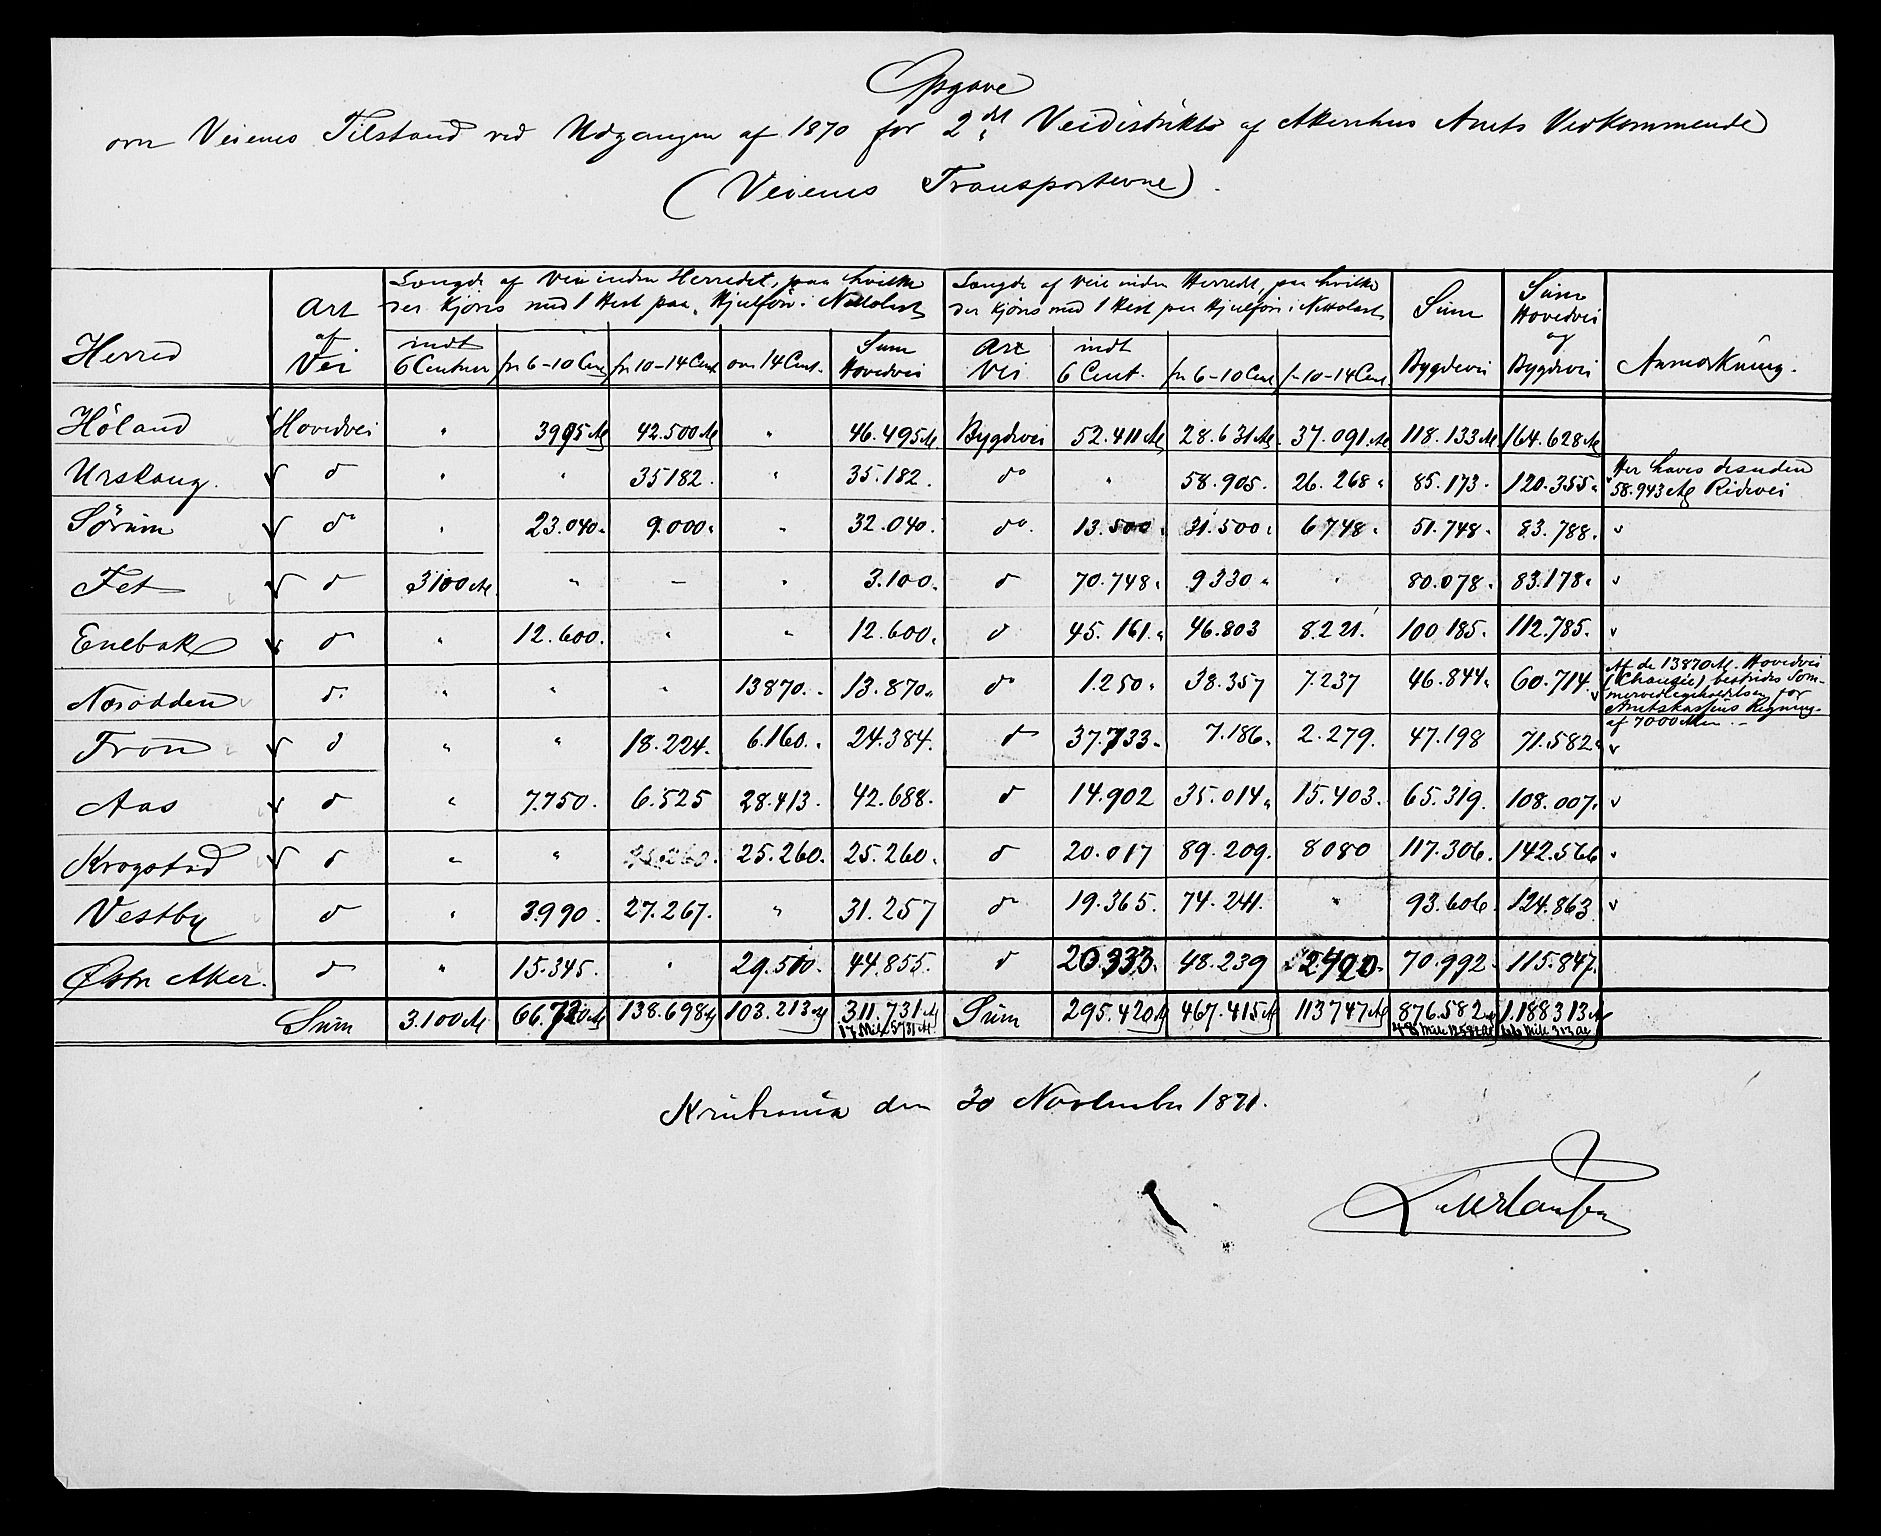 Opgave
om Veienes Tilstand ved Udgangen af 1870 for 2det Veidistrikts af Akershus Amts Vedkommende
(Veienes Transportevne).
Herred | Art af Vei | Længde af Veie inden Herredet, paa hvilke der kjøres med 1 Hest paa Hjulføre i Nettolast | Længde af Veie inden Herredet, paa hvilke der kjøres med 1 Hest paa Hjulføre i Nettolast | Sum Bygdevei | Sum Hovedvei og Bygdevei | Anmærkning.
indt 6 Centner | fra 6-10 Cent | fra 10-14 Cent. | over 14 Cent. | Sum Hovedvei | Art Vei | indt 6 Cent. | fra 6-10 Cent | fra 10-14 Cent.
Höland | Hovedvei | " | 3995 Al | 42.500 Al | " | 46.495 Al | Bygdevei | 52.411 Al | 28.631 Al | 37.091 Al | 118.133 Al | 164.628 Al
Urskoug. | do | " | " | 35182. | " | 35.182. | do | " | 58.905. | 26.268 " | 85.173. | 120.355 " | Her haves desuden 58.943 Al Ridevei
Sörum | do | " | 23.040 " | 9.000 " | " | 32.040. | do. | 13.500 " | 31.500 " | 6748 " | 51.748. | 83.788. | "
Fet | do | 3100 Al | " | - | " | 3.100. | do | 70.748 " | 9330 " | " | 80.078. | 83.178 " | "
Enebak | do | " | 12.600. | " | " | 12.600 " | do | 45.161 " | 46.803 | 8.221. | 100.185. | 112.785. | "
Næsodden | do | " | " | " | 13870. " | 13.870 " | do | 1.250 " | 38.357 | 7.237 | 46.844 " | 60.714. | Af de 13870 Al. Hovedvei (Chaussee) bestrides Sommervedligeholdelsen for Amtskassens Regning af 7000 Alen. -
Fron | do | " | " | 18.224. | 6.160. " | 24.384. | do | 37.733. | 7.186. | 2.279. | 47.198 | 71.582 " | "
Aas | do | " | 7.750. | 6.525 | 28.413. | 42.688. | do | 14.902 | 35.014 " | 15.403. | 65.319. | 108.007. | "
Krogstad | do | " | " | 25.260. | 25.260. | 25.260. | do | 20.017 | 89.209. | 8080 | 117.306. | 142.566 | "
Vestby | do | " | 3.990. | 27.267. | " | 31.257 | do | 19.365. | 74.241. | " | 93.606. | 124.863 | "
Østre Aker. | do | " | 15.345. | " | 29.510. | 44.855. | do | 20.333. | 48.239 | 2420. | 70.992. | 115.847.
Sum | 3.100 Al. | 66.720 Al | 138.698 Al | 103.213 Al | 311.731 Al | Sum | 295.420 Al | 467.415 Al | 113747 Al | 876.582 Al | 1.188313 Al
17 Mile 5731 Al. | 48 Mile 12582 Al | 66 Mile 313 Al
Kristiania den 30 November 1871.